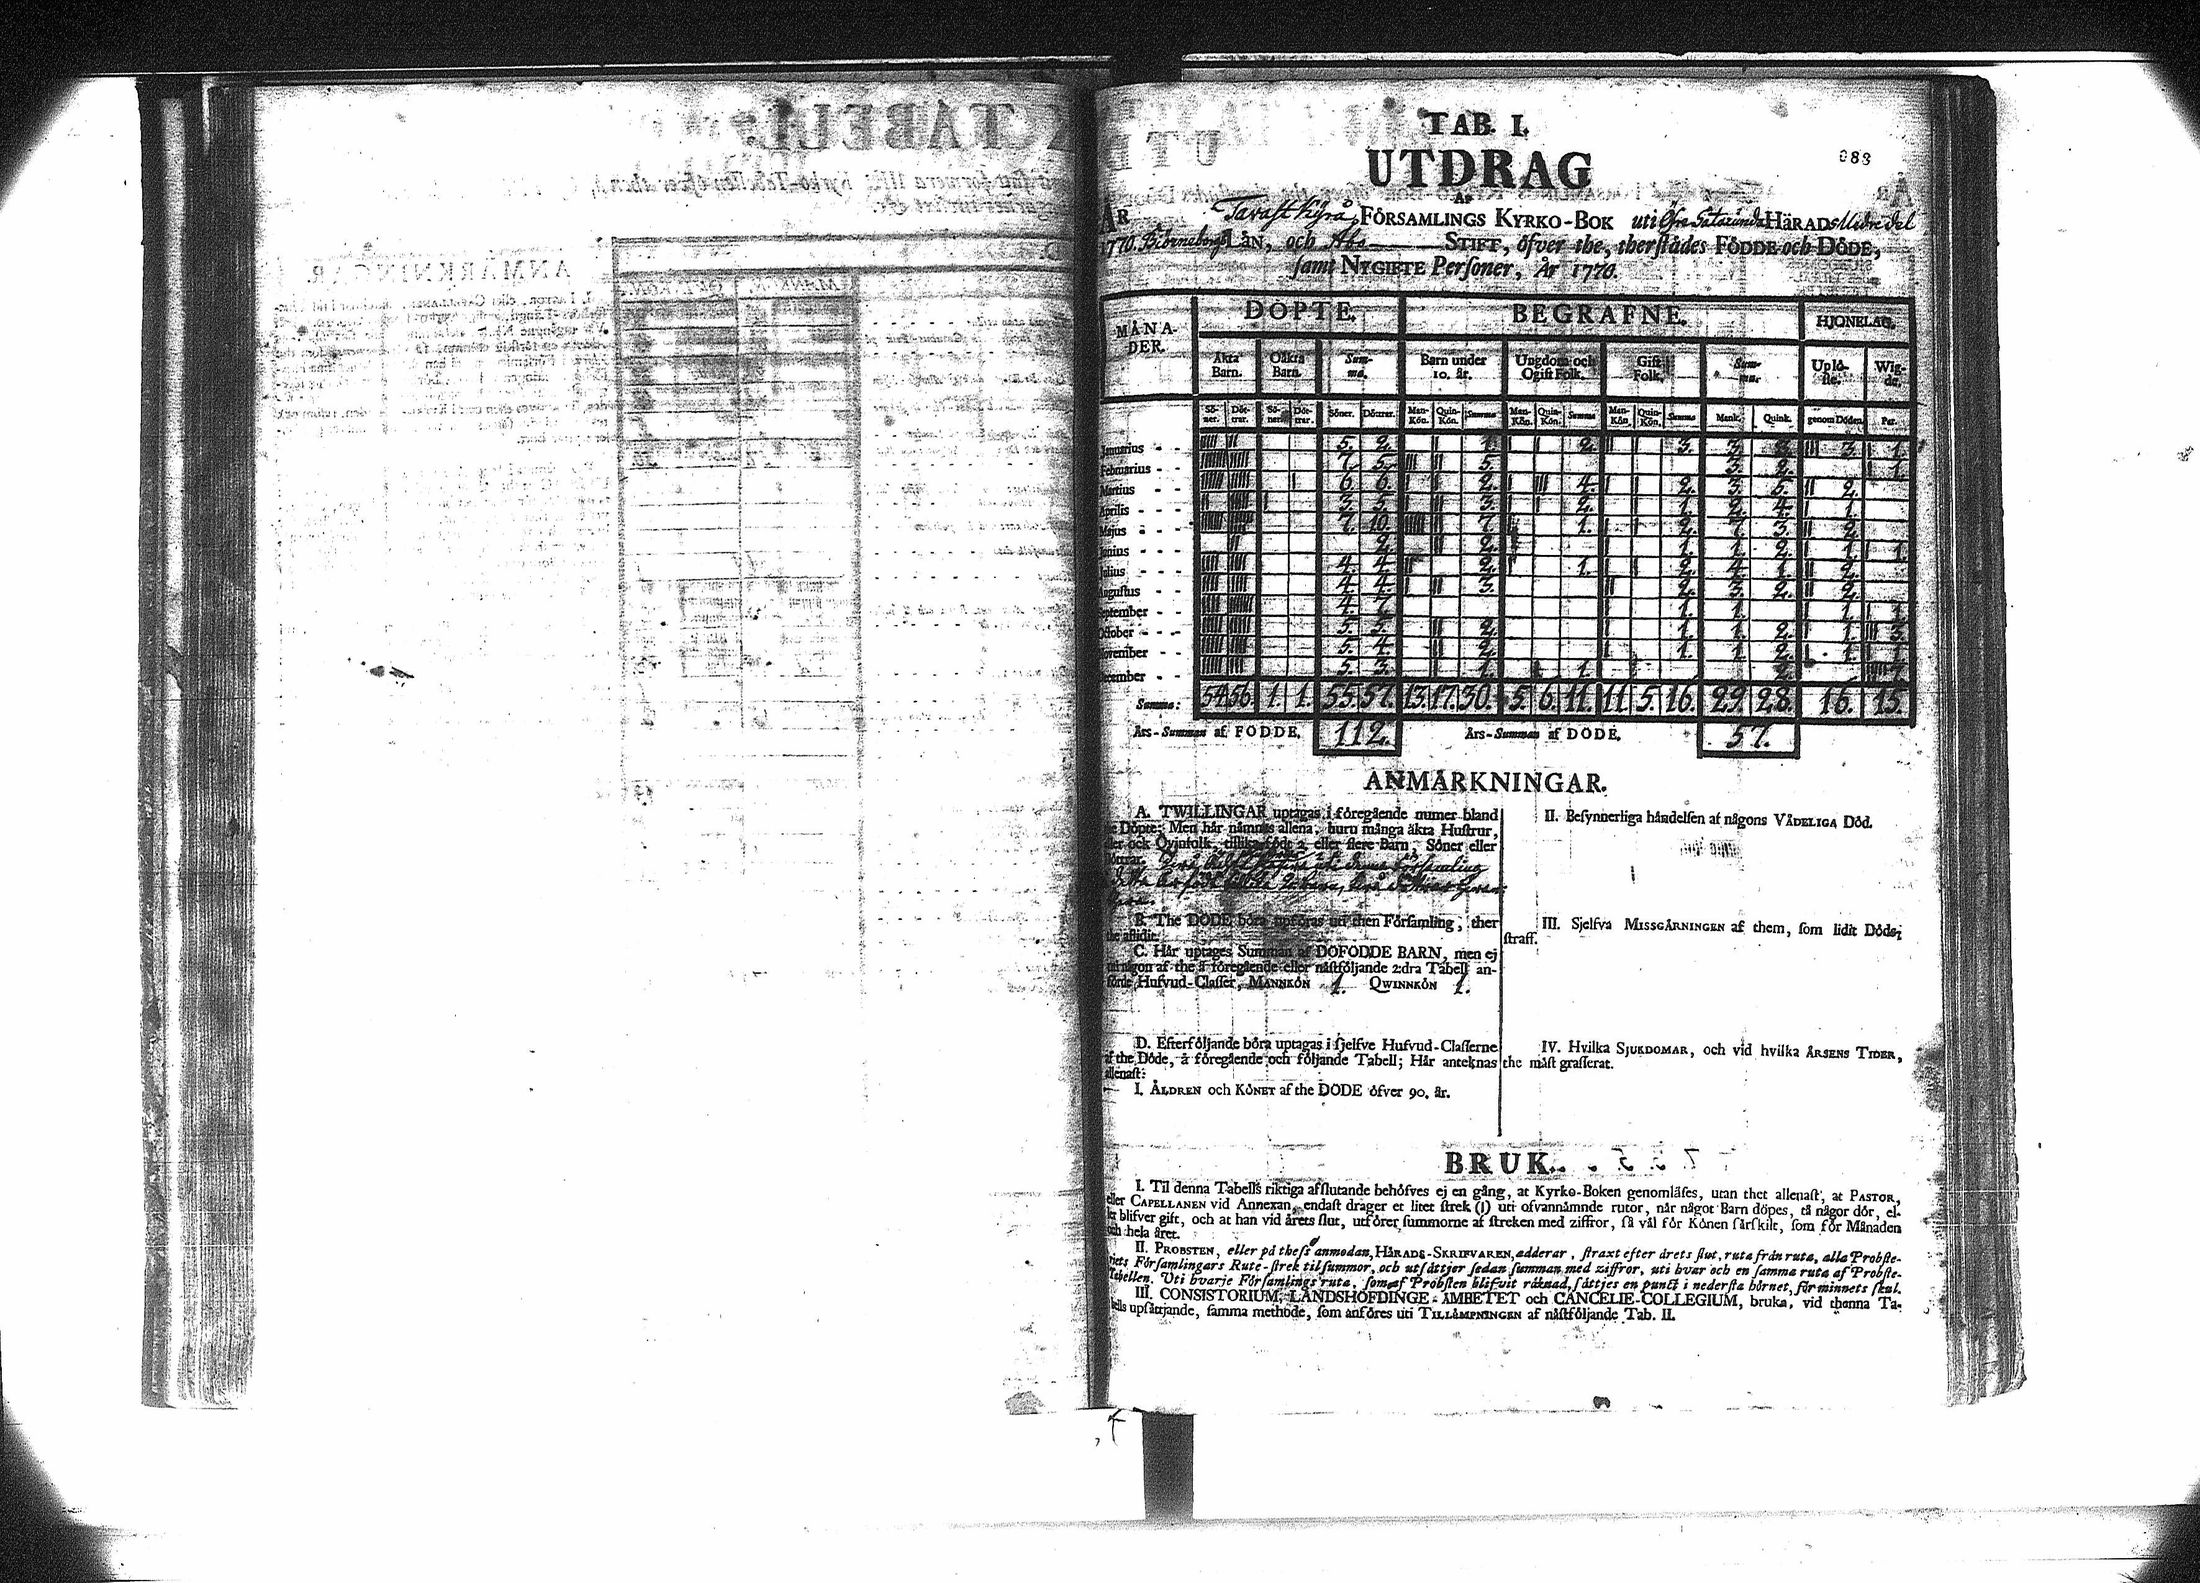 TAB. I.
UTDRAG
088
Af
ÅR Tavastkyrå FÖRSAMLINGS KYRKO-BOK uti Öfre Satacunda HÄRADS Nedre del
1770. Biörneborgs LÄN, och Åbo STIFT, öfver the, therstädes FÖDDE och DÖDE,
samt NYGIFTE Personer, År 1770.
MÅNA-DER. DÖPTE. BEGRAFNE. HJONELAG.
Äkta Barn. Oäkta Barn. Summa. Barn under 10. år. Ungdom och Ogift Folk. Gift Folk. Summa. Uplöste. Wigde.
Söner. Döttrar. Söner. Döttrar. Söner. Döttrar. Mankön. Quinkön. Summa Mankön. Quinkön. Summa Mankön. Quinkön. Summa Mank. Quink. genom Döden. Par.
Januarius - - 5. 2. 1. 2. 3. 3. 3. 3. 1.
Februarius - - 7. 5. 5. 3. 2. 1.
Martius - - 6. 6. 2. 4. 2. 3. 5. 2.
Aprilis - - 3. 5. 3. 2. 1. 2. 4. 1.
Majus - - 7. 10. 7. 1. 2. 7. 3. 2.
Junius - - 2. 2. 1. 1. 2. 1. 1.
Julius - - 4. 4. 2. 1. 2. 4. 1. 2.
Augustus - - 4. 4. 3. 2. 3. 2. 2.
September - - 4. 7. 1. 1. 1. 1.
October - - 5. 5. 2. 1. 1. 2. 1. 3.
November - - 5. 4. 2. 1. 1. 2. 1. 1.
December - - 5. 3. 1. 1. 2. 7.
Summa: 54 56. 1. 1. 55. 57. 13. 17. 30. 5. 6. 11. 11. 5. 16. 29. 28. 16. 15.
Års-Summan af FÖDDE. 112. Års-Summan af DÖDE. 57.
ANMÄRKNINGAR.
A. TWILLINGAR uptagas i föregående numer bland
the Döpte: Men här nämnas allena, huru många äkta Hustrur,
eller ock Qvinfolk, tillika födt 2. eller flere Barn, Söner eller
Döttrar.
B. The DÖDE böra upföras uti then Församling, ther
the aflidit.
C. Här uptages Summan af DÖFÖDDE BARN, men ej
uti någon af the å föregående eller nästföljande 2:dra Tabell an-
förde Hufvud-Classer, MANNKÖN 1. QWINNKÖN 1.
D. Efterföljande böra uptagas i sjelfve Hufvud-Classerne
af the Döde, å föregående och följande Tabell; Här anteknas
allenast:
I. ÅLDREN och KÖNET af the DÖDE öfver 90. år.
II. Besynnerliga händelsen af någons VÅDELIGA Död.
III. Sjelfva MISSGÄRNINGEN af them, som lidit Döds-
straff.
IV. Hvilka SJUKDOMAR, och vid hvilka ÅRSENS TIDER,
the mäst grasserat.
BRUK.
I. Til denna Tabells riktiga afslutande behöfves ej en gång, at Kyrko-Boken genomläses, utan thet allenast, at PASTOR,
eller CAPELLANEN vid Annexan, endast drager et litet strek (|) uti ofvannämnde rutor, när något Barn döpes, tå någor dör, el-
ler blifver gift, och at han vid årets slut, utförer summorne af streken med ziffror, så väl för Könen särskilt, som för Månaden
och hela året.
II. PROBSTEN, eller på thess anmodan, HÄRADS-SKRIFVAREN, adderar, straxt efter årets slut, ruta från ruta, alla Probste-
riets Församlingars Rute-strek til summor, och utsättjer sedan summan med ziffror, uti hvar och en samma ruta af Probste-
Tabellen. Uti hvarje Församlings ruta, som af Probsten blifvit räknad, sättjes en punkt i nedersta hörnet, för minnets skul.
III. CONSISTORIUM, LANDSHÖFDINGE-ÄMBETET och CANCELIE-COLLEGIUM, bruka, vid thenna Ta-
bells upsättjande, samma methode, som anföres uti TILLÄMPNINGEN af nästföljande Tab. II.